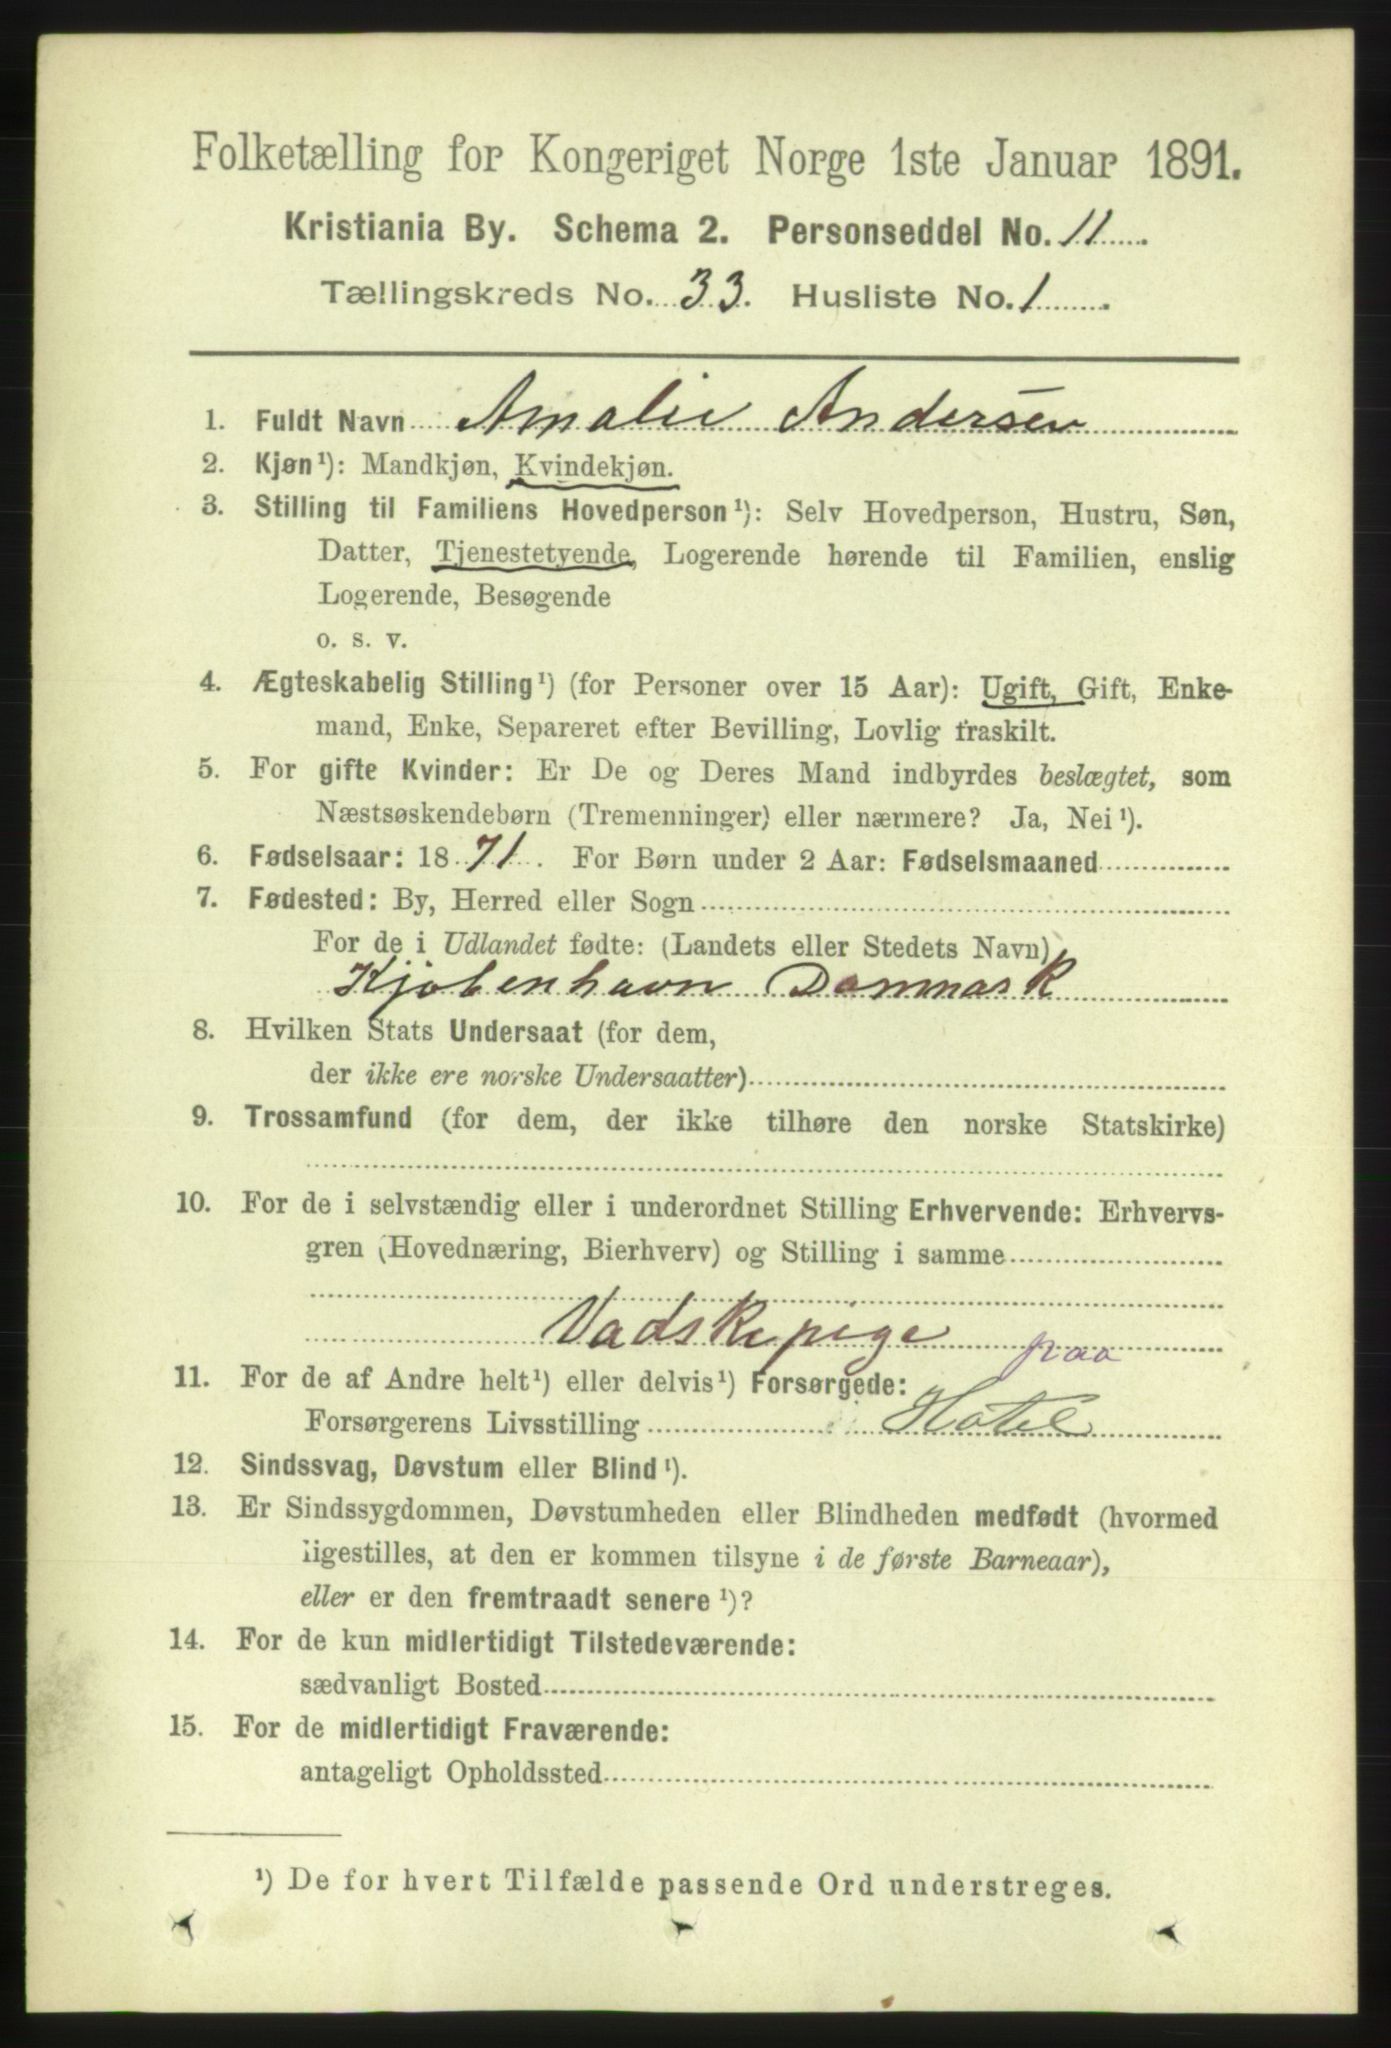 Folketælling for Kongeriget Norge 1ste Januar 1891.
Kristiania By. Schema 2. Personseddel No. 11
Tællingskreds No. 33. Husliste No. 1
1. Fuldt Navn Amalie Andersen
2. Kjøn¹): Mandkjøn, Kvindekjøn.
3. Stilling til Familiens Hovedperson¹): Selv Hovedperson, Hustru, Søn,
Datter, Tjenestetyende, Logerende hørende til Familien, enslig
Logerende, Besøgende
o. s. v.
4. Ægteskabelig Stilling¹) (for Personer over 15 Aar): Ugift, Gift, Enke-
mand, Enke, Separeret efter Bevilling, Lovlig fraskilt.
5. For gifte Kvinder: Er De og Deres Mand indbyrdes beslægtet, som
Næstsøskendebørn (Tremenninger) eller nærmere? Ja, Nei¹).
6. Fødselsaar: 1871. For Børn under 2 Aar: Fødselsmaaned
7. Fødested: By, Herred eller Sogn
For de i Udlandet fødte: (Landets eller Stedets Navn)
Kjøbenhavn Danmask
8. Hvilken Stats Undersaat (for dem,
der ikke ere norske Undersaatter)
9. Trossamfund (for dem, der ikke tilhøre den norske Statskirke)
10. For de i selvstændig eller i underordnet Stilling Erhvervende: Erhvervs-
gren (Hovednæring, Bierhverv) og Stilling i samme
Vadskepige paa
11. For de af Andre helt¹) eller delvis¹) Forsørgede:
Forsørgerens Livsstilling Hotel
12. Sindssvag, Døvstum eller Blind¹).
13. Er Sindssygdommen, Døvstumheden eller Blindheden medfødt (hvormed
ligestilles, at den er kommen tilsyne i de første Barneaar),
eller er den fremtraadt senere¹)?
14. For de kun midlertidigt Tilstedeværende:
sædvanligt Bosted
15. For de midlertidigt Fraværende:
antageligt Opholdssted
¹) De for hvert Tilfælde passende Ord understreges.